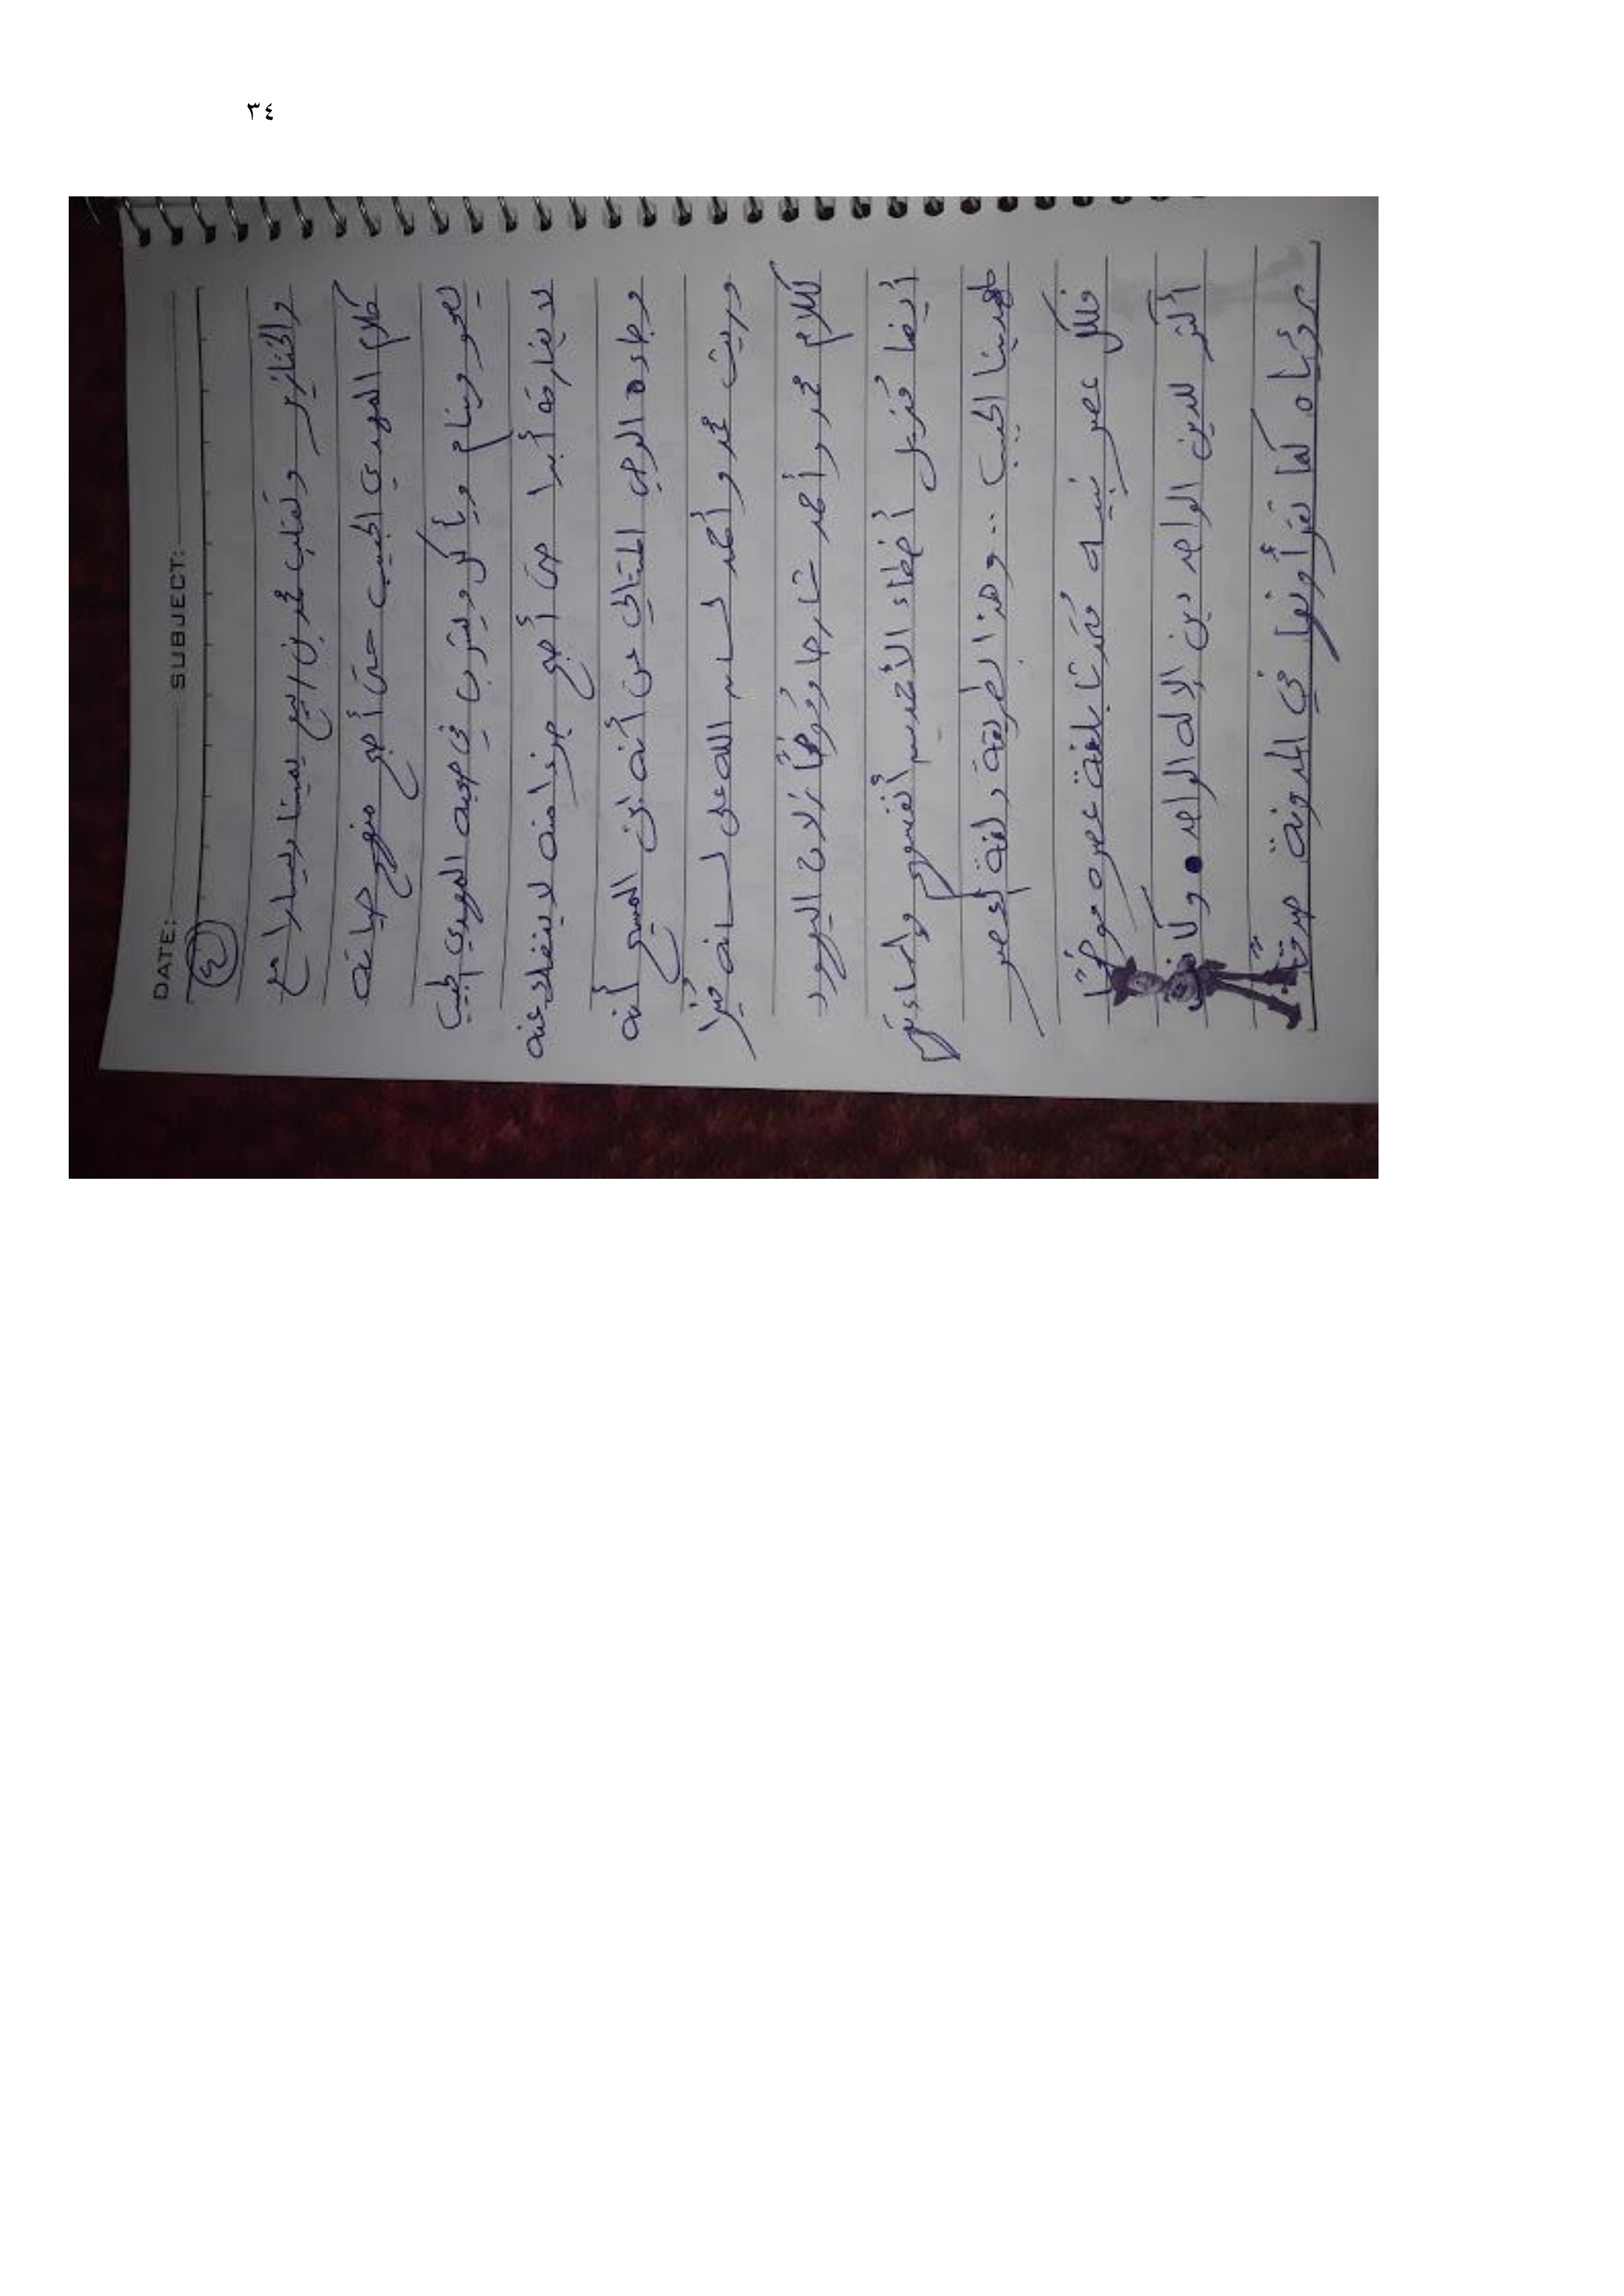 ٣٤
DATE: SUBJECT:
٤
والخنازير وتقلب محمد بن ربيع يمينا ويسارا مع
كلام المهدي الحبيب حتى أصبح منهج حياته
يصحو وينام ويأكل ويشرب في صحبة المهدي الحبيب
لا يفارقه أبدا حتى أصبح جزءا منه لا ينفك عنه
وجاءه الوحي المتتالي عن أنه ابن المسيح أنه
وريث محمد وأحمد كلام الله على لسانه مُفسرا
كلام محمد وأحمد شارحا
أيضا أخطاء الأحمديين أنفسهم
مهدينا الحبيب .. وهذا الطريقة ولغة العصر
فلكل عصر نبيه مُحَدِّثا بلغة عصره
أكثر للدين الواحد دين الإله الواحد . وكانت
رؤياه كما تقرأونها في المدونة